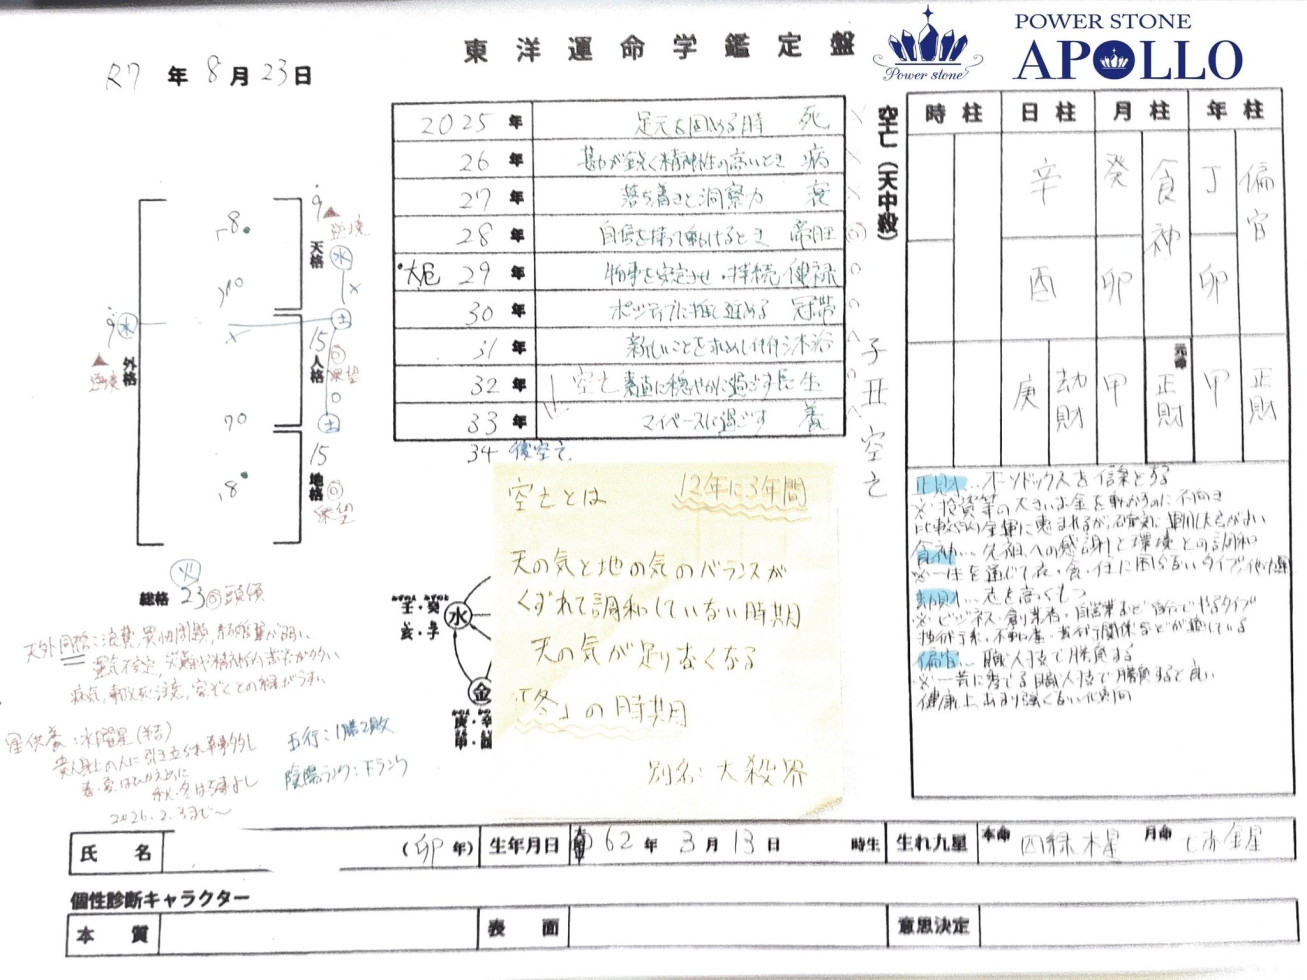 東洋運命学鑑定盤
Power stone
POWER STONE
APOLLO
R7 年 8 月 23 日
2025 年 足元を固める時 死
26 年 勘が鋭く精神性の高いとき 病
27 年 落ち着きと洞察力 衰
28 年 自信を持って動けるとき 帝旺
大厄 29 年 物事を安定させ・持続 健禄
30 年 ポジティブに推し進める 冠帯
31 年 新しいことを求めし 沐浴
32 年 空亡 素直に穏やかに過ごす 長生
33 年 マイペースに過ごす 養
34 後空亡
空亡(天中殺)
子丑空亡
時柱 日柱 月柱 年柱
辛 癸 食神 丁 偏官
酉 卯 卯
元命
庚 劫財 甲 正財 甲 正財
正財…オーソドックスを信条とする
※投資等の大きいお金を動かすのに不向き
比較的金運に恵まれるが、確実に運用した方が良い
食神…先祖への感謝と環境との調和
※一生を通じて衣・食・住に困らないタイプ
劫財…志を高くもつ
※ビジネス・創業者・自営業など自分でやるタイプ
偏官…職人技で勝負する
※一芸に秀でる職人技で勝負すると良い
健康上あまり強くない傾向
9
天格
水
8
10
×
土
9 水
外格
15
人格
70
土
8
15
地格
火
総格 23 頭領
天外同格:浪費、異性問題、
運気不安定、災難や精神的
病気、事故死注意、
星供養:水曜星(吉)
貴人目上の人に引き立られ事多し
春・夏はひかえめに
秋・冬は万事よし
2026.2.3まで〜
五行:1勝2敗
陰陽ランク:下ランク
みずのえ みずのと
壬・癸
亥・子
水
金
空亡とは 12年に3年間
天の気と地の気のバランスが
くずれて調和していない時期
天の気が足りなくなる
「冬」の時期
別名:大殺界
氏名 (卯年) 生年月日 62 年 3 月 13 日 時生 生れ九星 本命 四緑木星 月命 七赤金星
個性診断キャラクター
本質 表面 意思決定